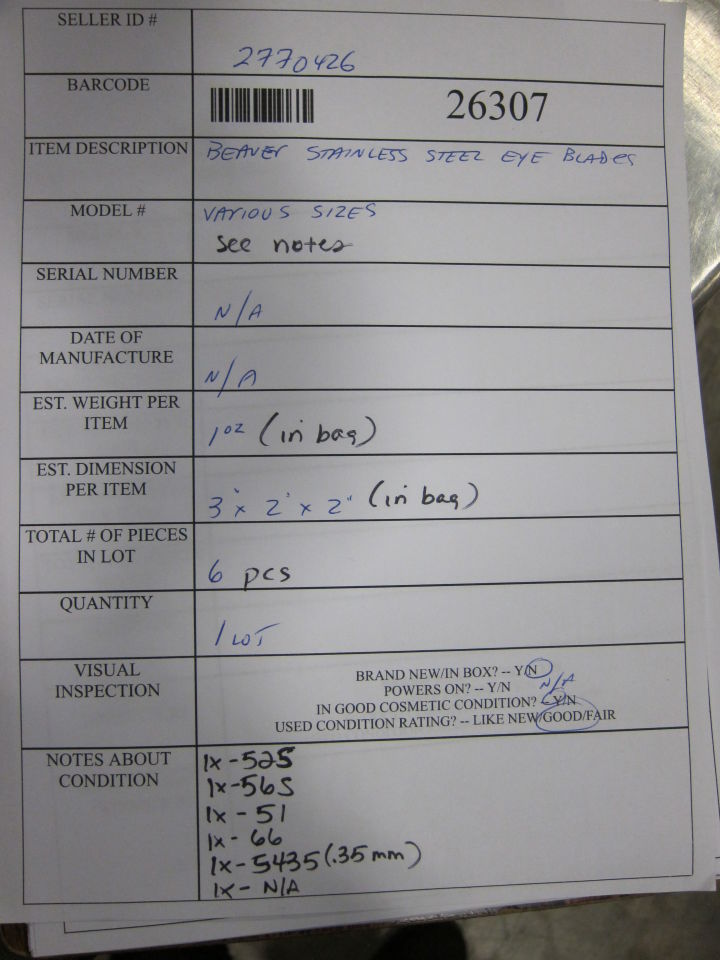 SELLER ID #
2770426
BARCODE
26307
ITEM DESCRIPTION
BEAVER STAINLESS STEEL EYE BLADES
MODEL #
VARIOUS SIZES
See notes
SERIAL NUMBER
N/A
DATE OF
MANUFACTURE
N/A
EST. WEIGHT PER
ITEM
1oz (in bag)
EST. DIMENSION
PER ITEM
3" x 2" x 2" (in bag)
TOTAL # OF PIECES
IN LOT
6 pcs
QUANTITY
1 LOT
VISUAL
INSPECTION
BRAND NEW/IN BOX? -- Y/N
POWERS ON? -- Y/N N/A
IN GOOD COSMETIC CONDITION? -- Y/N
USED CONDITION RATING? -- LIKE NEW/GOOD/FAIR
NOTES ABOUT
CONDITION
1x - 525
1x - 565
1x - 51
1x - 66
1x - 5435 (.35 mm)
1x - N/A